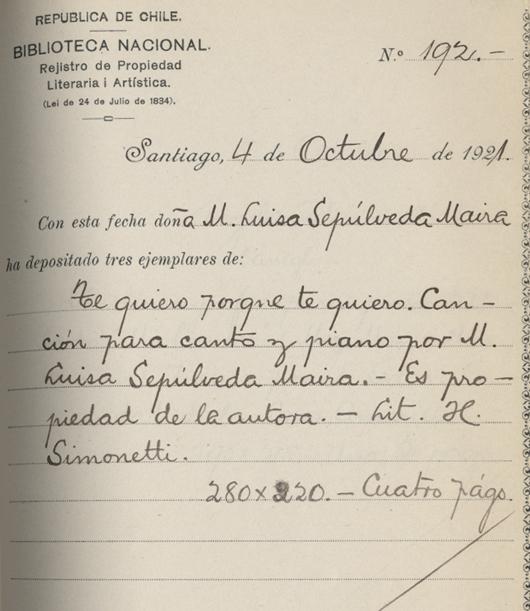 REPUBLICA DE CHILE.
BIBLIOTECA NACIONAL.
Rejistro de Propiedad
Literaria i Artística.
(Lei de 24 de Julio de 1834).
N.º 192.-
Santiago, 4 de Octubre de 1921.
Con esta fecha doña M. Luisa Sepúlveda Maira
ha depositado tres ejemplares de:
Te quiero porque te quiero. Can-
ción para canto y piano por M.
Luisa Sepúlveda Maira.- Es pro-
piedad de la autora. - Lit. H.
Simonetti.
280 x 220. - Cuatro págs.